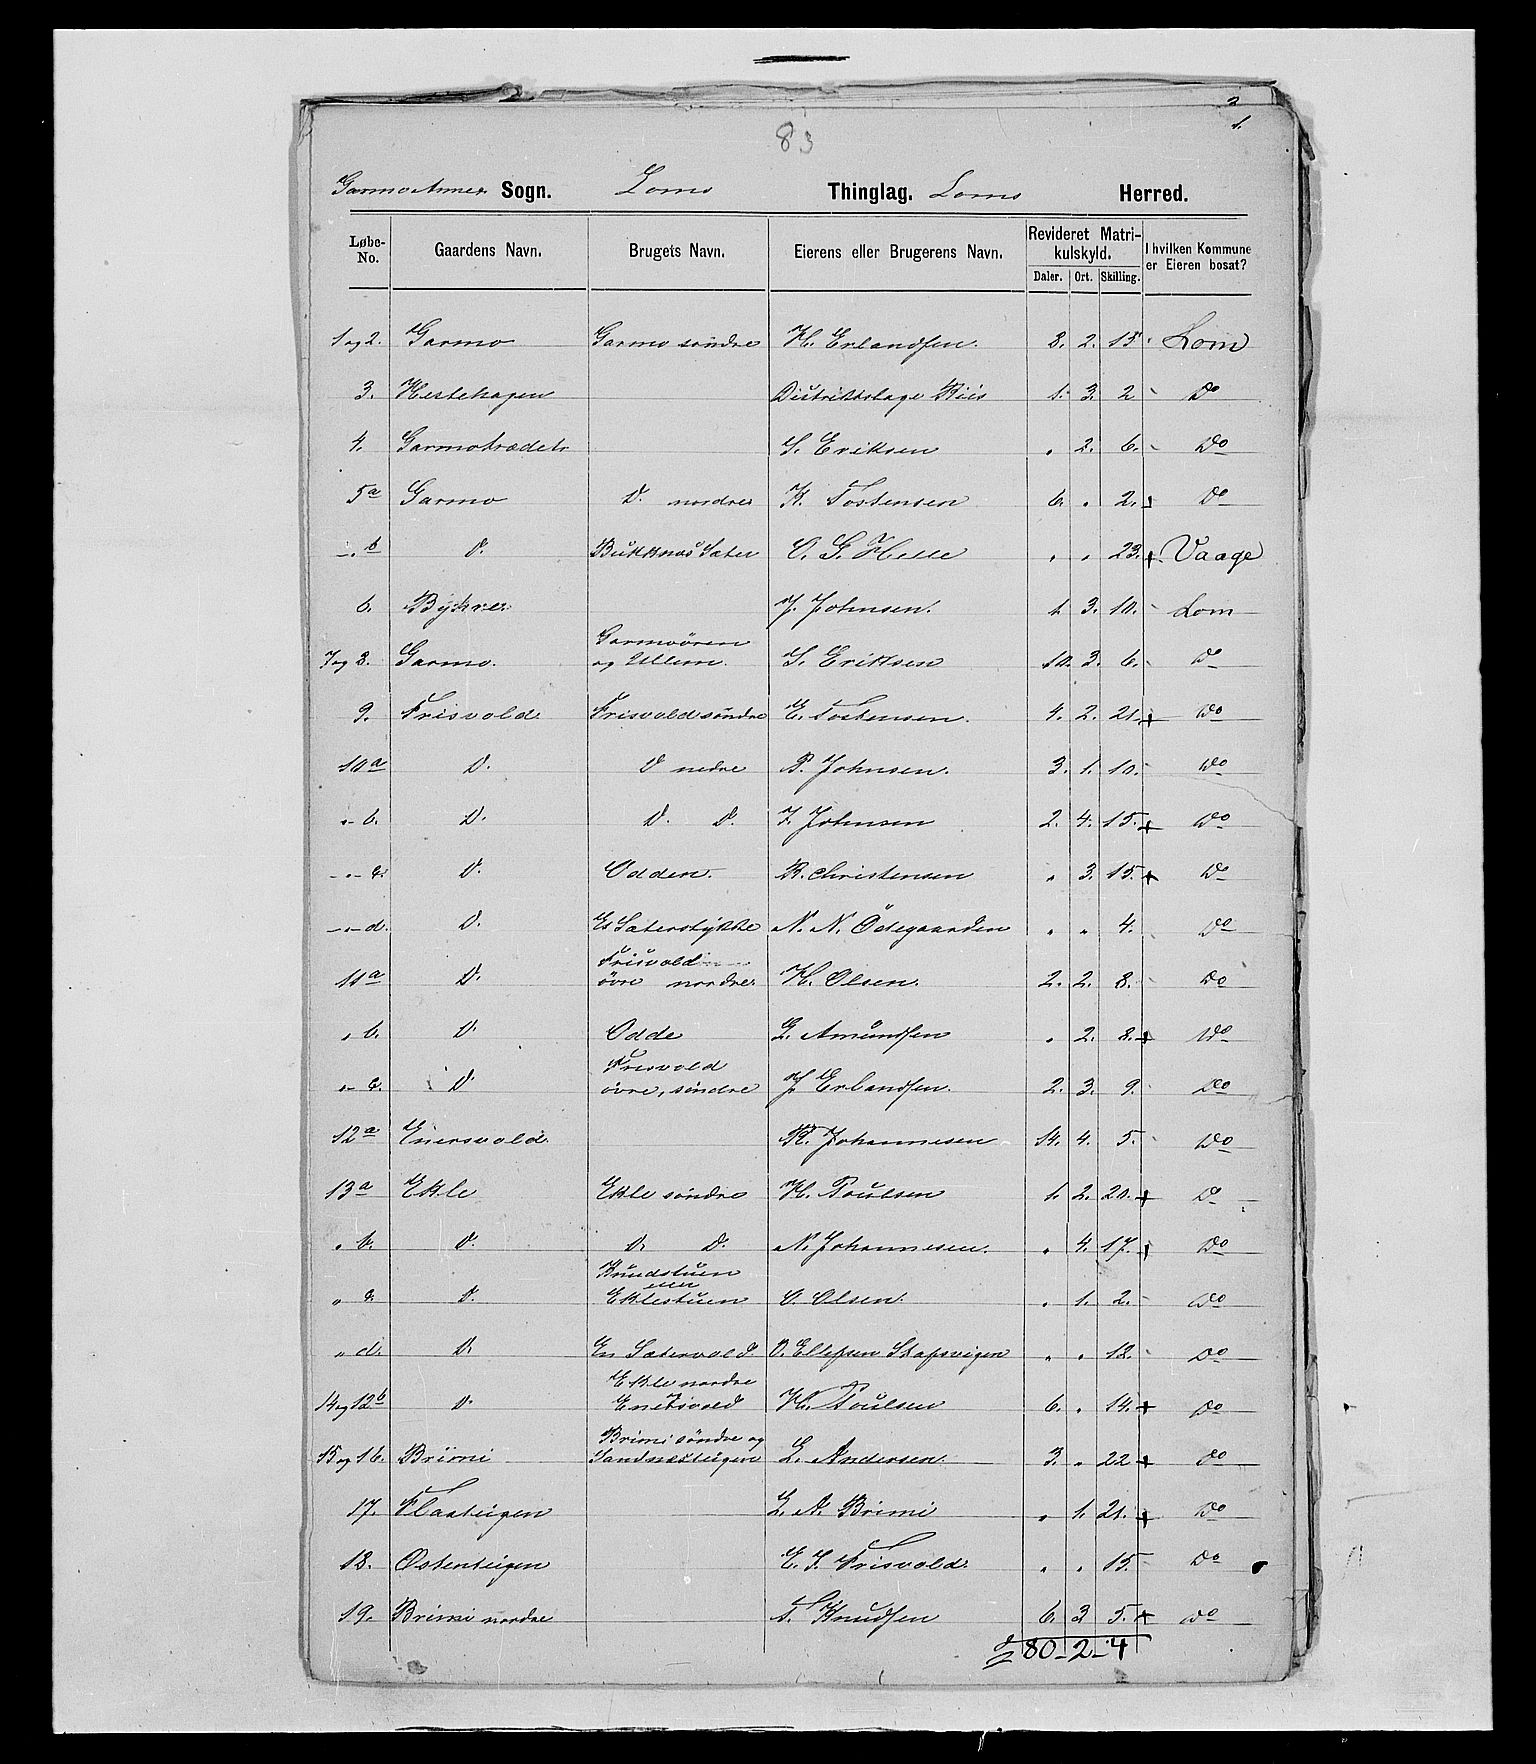 2
1.
83
Garmo Annex Sogn. Loms Thinglag. Loms Herred.
Løbe-No. Gaardens Navn. Brugets Navn. Eierens eller Brugerens Navn. Revideret Matrikulskyld. I hvilken Kommune er Eieren bosat?
Daler. Ort. Skilling.
1 og 2. Garmo Garmo søndre H. Erlandsen. 8. 2. 15. Lom
3. Hestehagen Distriktslæge Riis 1. 3. 2 Do
4. Garmotrædet S. Eriksen " 2. 6. Do
5a Garmo D. nordre K. Tostensen 6. " 2. Do
-"b D. Bukknas Sæter O. G. " " 23. Vaage
6. J. Johnsen. 1. 3. 10. Lom
7 og 8. Garmo. Garmoören og Ullem. S. Eriksen 10. 3. 6. Do
9. Frisvold Frisvold søndre E. Tostensen. 4. 2. 21. Do
10a D. D nedre P. Johnsen. 3. 1. 10. Do
"- b. D. D. D. J. Johnsen 2. 4. 15. Do
-"- c. D. Odden. R. Christensen " 3. 15. Do
-"- d. D. Et Sæterstykke N. N. Ödegaarden " " 4. Do
11a D. Frisvold övre nordre H. Olsen. 2. 2. 8. Do
" b. D. Odde L. Amundsen " 2. 8. Do
"- c. D. Frisvold övre, søndre J Erlandsen. 2. 3. 9. Do
12a Enersvold R. Johannesen 14. 4. 5. Do
13a Ekle Ekle søndre H. Poulsen 1. 2. 20. Do
" b. D. D. D. N. Johannesen. " 4. 17. Do
" c. D. Knudstuen eller Eklestuen O. Olsen. " 1. 2. Do
" d. D. En Sætervold O. Ellefsen Skafsvigen " " 12. Do
14 og 12b D. Ekle nordre H. Poulsen 6. " 14. Do
15 og 16. Brimi Brimi søndre og Sandnæsteigen L. Andersen. 3. " 22 Do
17. Flaateigen L. A. Brimi " 1. 21. Do
18. Ostenteigen E. T. Frisvold. " " 15. Do
19. Brimi nordre T. Knudsen 6. 3 5. Do
80-2-4